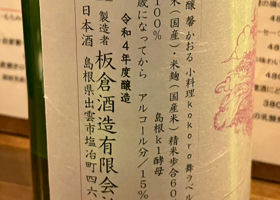 醸馨かおる 小料理kokoro舞ラベル
米(国産米)・米麹(国産米) 精米歩合60
100% 島根K1酵母
歳になってから アルコール分/15%
令和4年度醸造
製造者 板倉酒造有限会
日本酒 島根県出雲市塩冶町四六